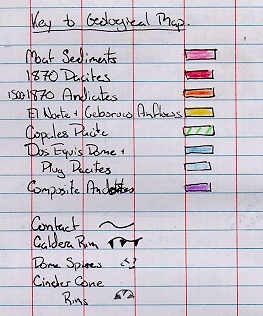 Key to Geological Map.
Moat Sediments
1870 Dacites
1500-1870 Andicites
El Norte + Ceboruco Anflows
Copales Dacite
Dos Equis Dome +
Plug Dacites
Composite
Contact
Caldera Rim
Dome Spines
Cinder Cone
Rims